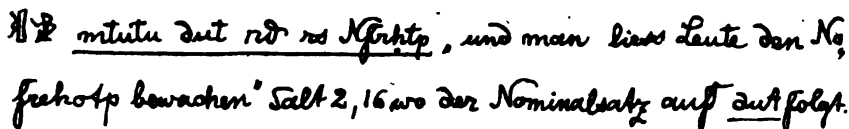 mtutu dut rd rs Nfrḥtp, und man liess Leute den No,
frehotp bewachen" Salt 2,16 wo der Nominalsatz auf dut folgt.